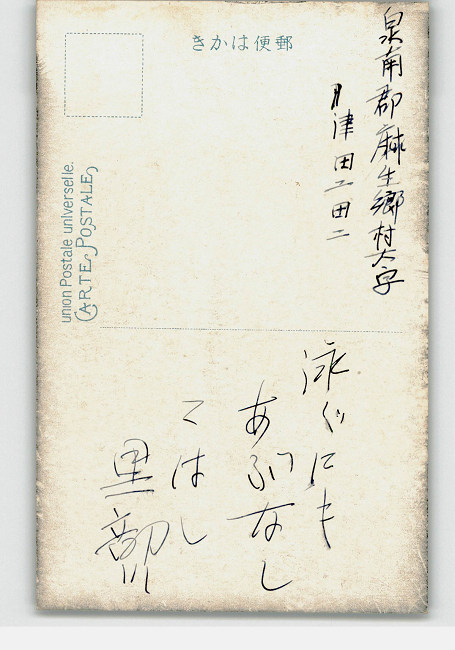 きかは便郵
union Postale universelle.
CARTE POSTALE
泉南郡麻生郷村大字
津田
泳ぐにも
あぶなし
こはし
黒部川